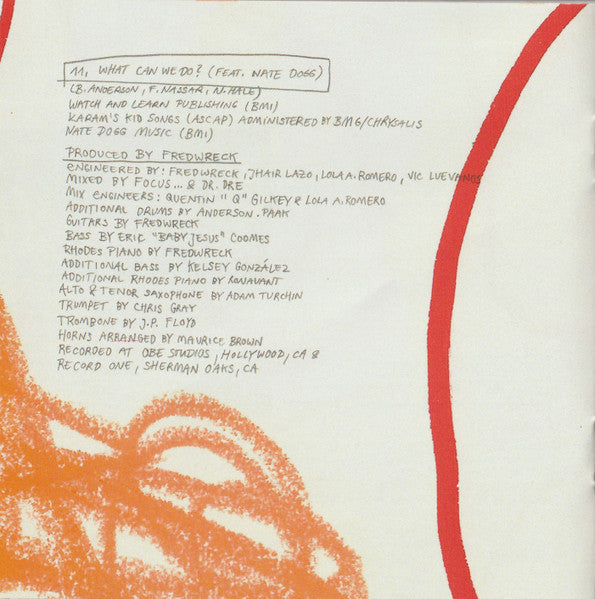 11. WHAT CAN WE DO? (FEAT. NATE DOGG)
(B. ANDERSON, F. NASSAR, N. HALE)
WATCH AND LEARN PUBLISHING (BMI)
KARAM'S KID SONGS (ASCAP) ADMINISTERED BY BMG/CHRYSALIS
NATE DOGG MUSIC (BMI)
PRODUCED BY FREDWRECK
ENGINEERED BY: FREDWRECK, JHAIR LAZO, LOLA A. ROMERO, VIC LUEVANOS
MIXED BY FOCUS... & DR. DRE
MIX ENGINEERS: QUENTIN "Q" GILKEY & LOLA A. ROMERO
ADDITIONAL DRUMS BY ANDERSON .PAAK
GUITARS BY FREDWRECK
BASS BY ERIC "BABY JESUS" COOMES
RHODES PIANO BY FREDWRECK
ADDITIONAL BASS BY KELSEY GONZÁLEZ
ADDITIONAL RHODES PIANO BY RONAVANT
ALTO & TENOR SAXOPHONE BY ADAM TURCHIN
TRUMPET BY CHRIS GRAY
TROMBONE BY J.P. FLOYD
HORNS ARRANGED BY MAURICE BROWN
RECORDED AT OBE STUDIOS, HOLLYWOOD, CA &
RECORD ONE, SHERMAN OAKS, CA